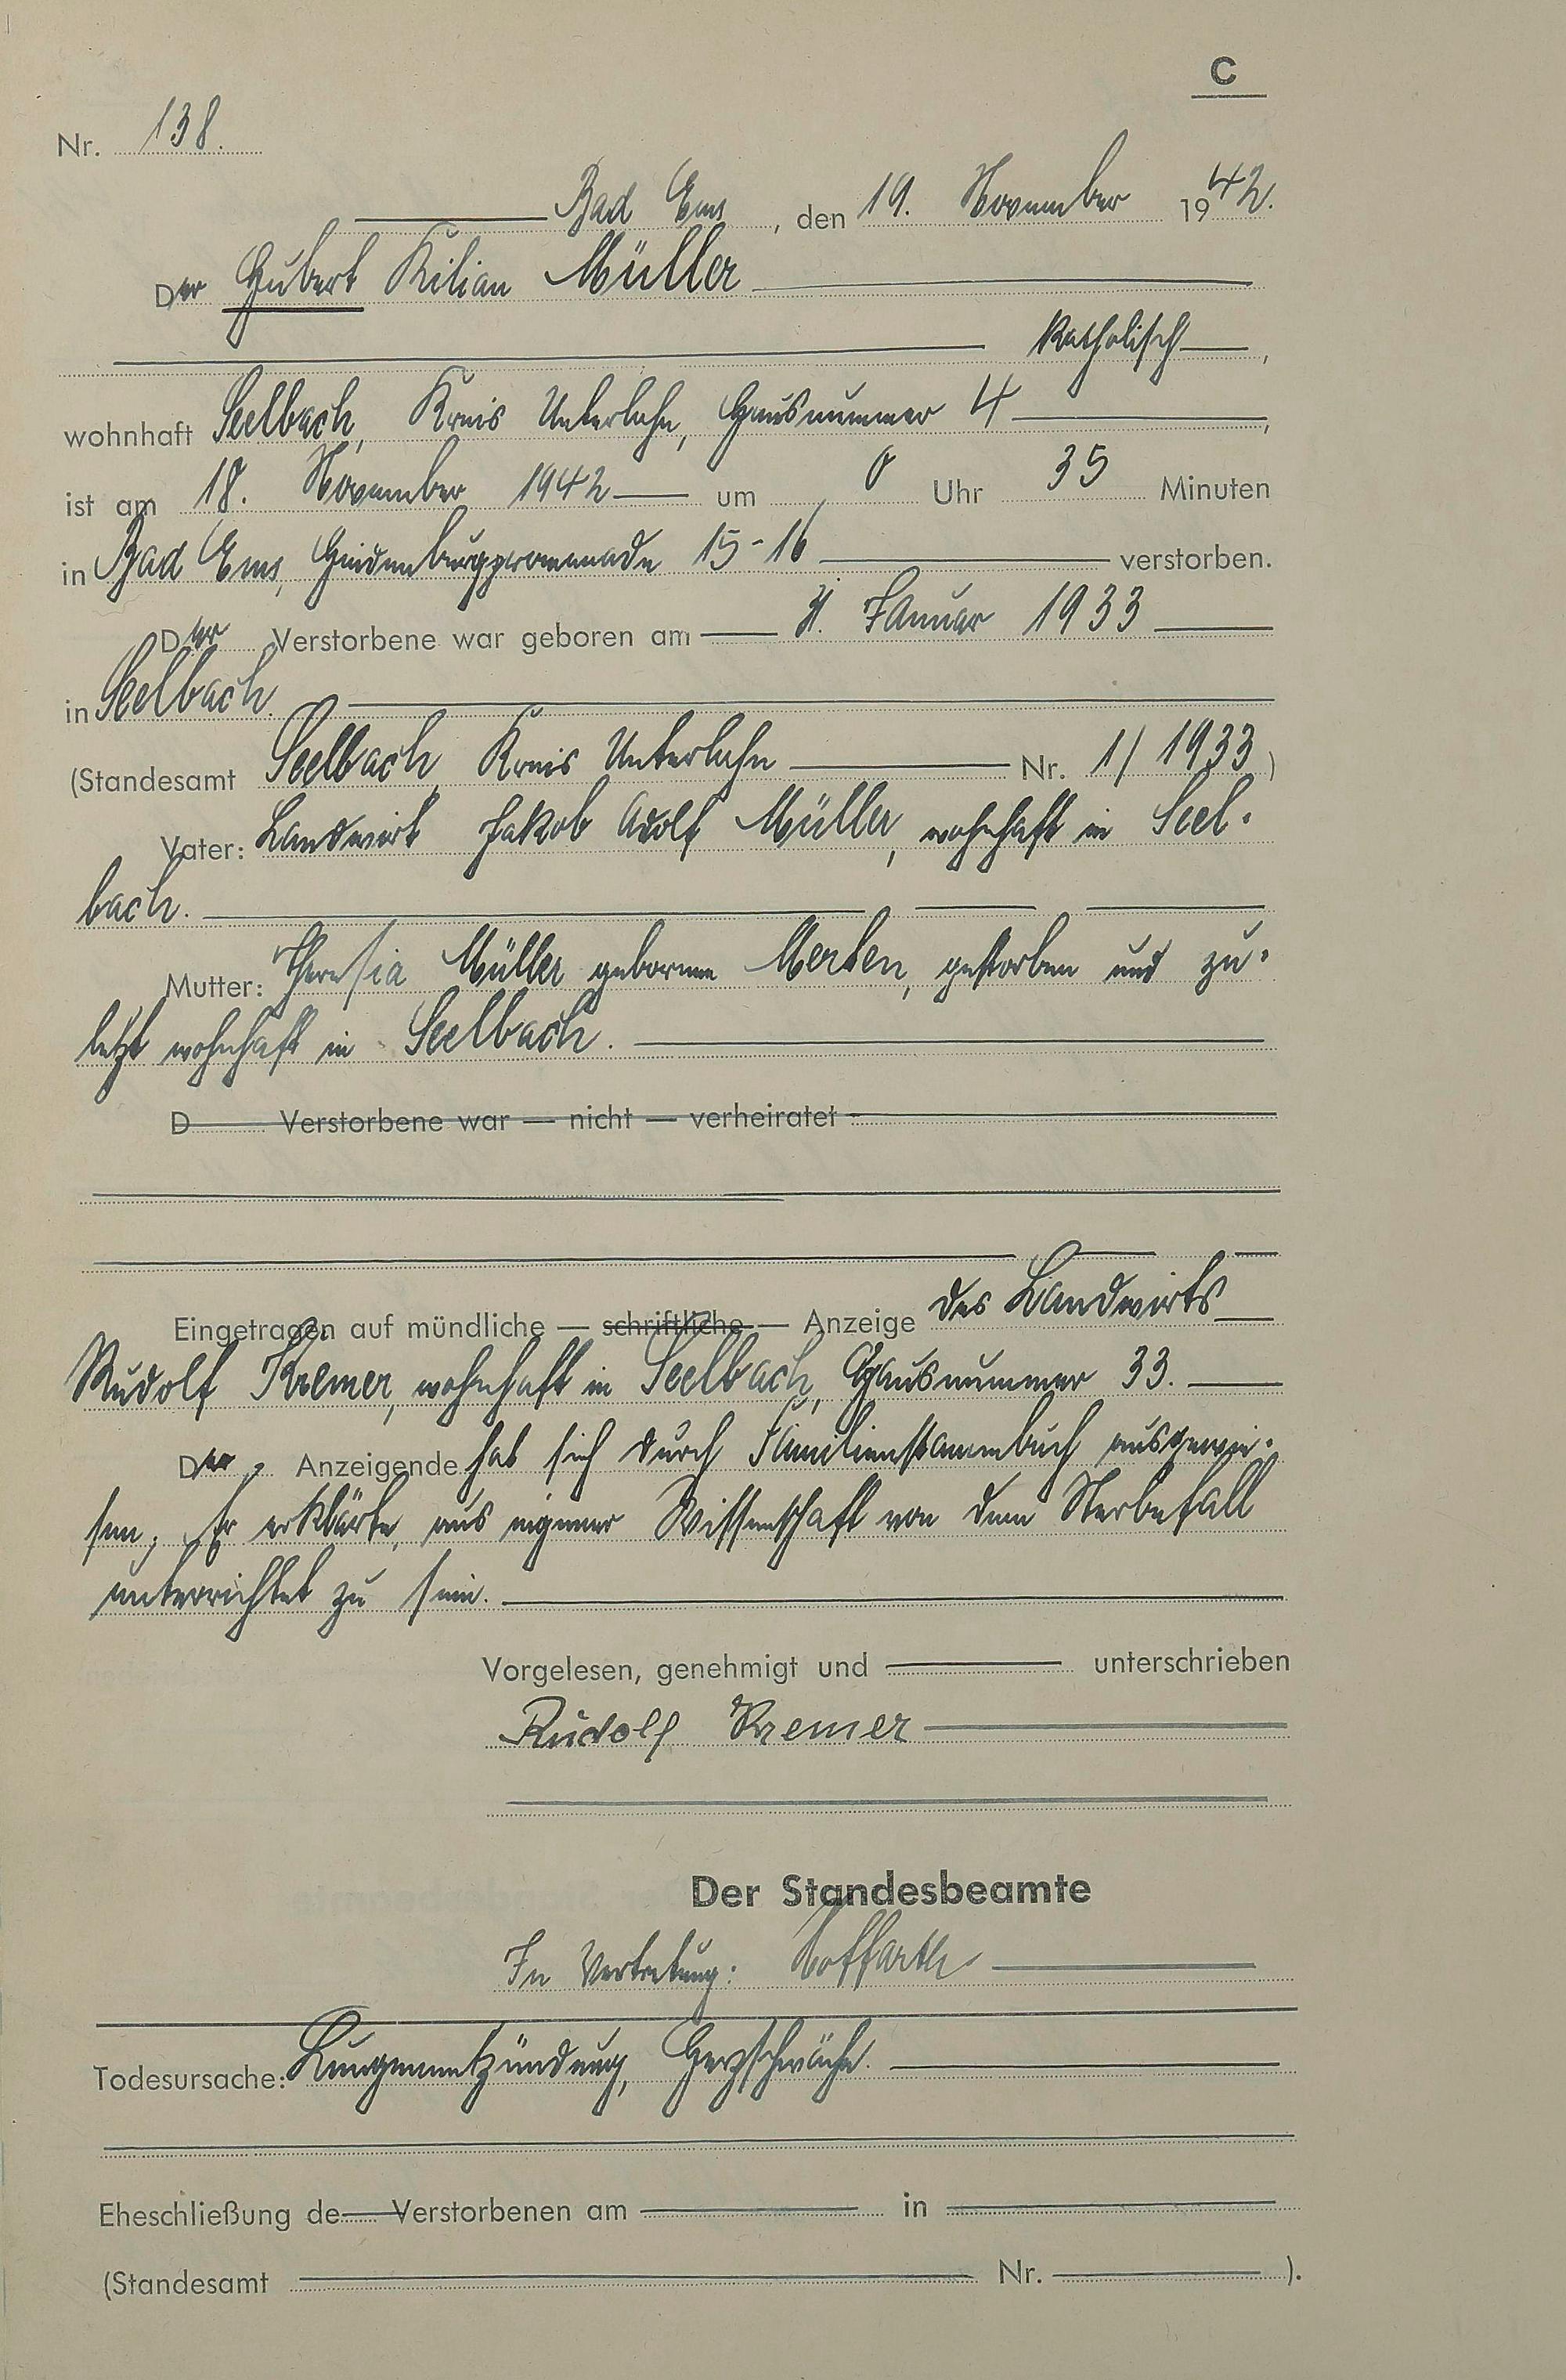 C
Nr. 138.
Bad Ems, den 19. November 1942.
Der Hubert Kilian Müller
katholisch,
wohnhaft Seelbach, Kreis Unterlahn, Hausnummer 4,
ist am 18. November 1942 um 0 Uhr 35 Minuten
in Bad Ems, Hindenburgpromenade 15-16 verstorben.
Der Verstorbene war geboren am Januar 1933
in Seelbach.
(Standesamt Seelbach, Kreis Unterlahn Nr. 1/1933)
Vater: Landwirt Jakob Adolf Müller, wohnhaft in Seel-
bach.
Mutter: Theresia Müller geborene Merten, gestorben und zu-
letzt wohnhaft in Seelbach.
D Verstorbene war — nicht — verheiratet
Eingetragen auf mündliche — schriftliche — Anzeige des Landwirts
Rudolf Kremer, wohnhaft in Seelbach, Hausnummer 33.
Der Anzeigende hat sich durch Familienstammbuch ausgewie-
sen; Er erklärte, aus eigener Wissenschaft von dem Sterbefall
unterrichtet zu sein.
Vorgelesen, genehmigt und unterschrieben
Rudolf Kremer
Der Standesbeamte
In Vertretung:
Todesursache: Lungenentzündung, Herzschwäche.
Eheschließung de Verstorbenen am in
(Standesamt Nr. ).